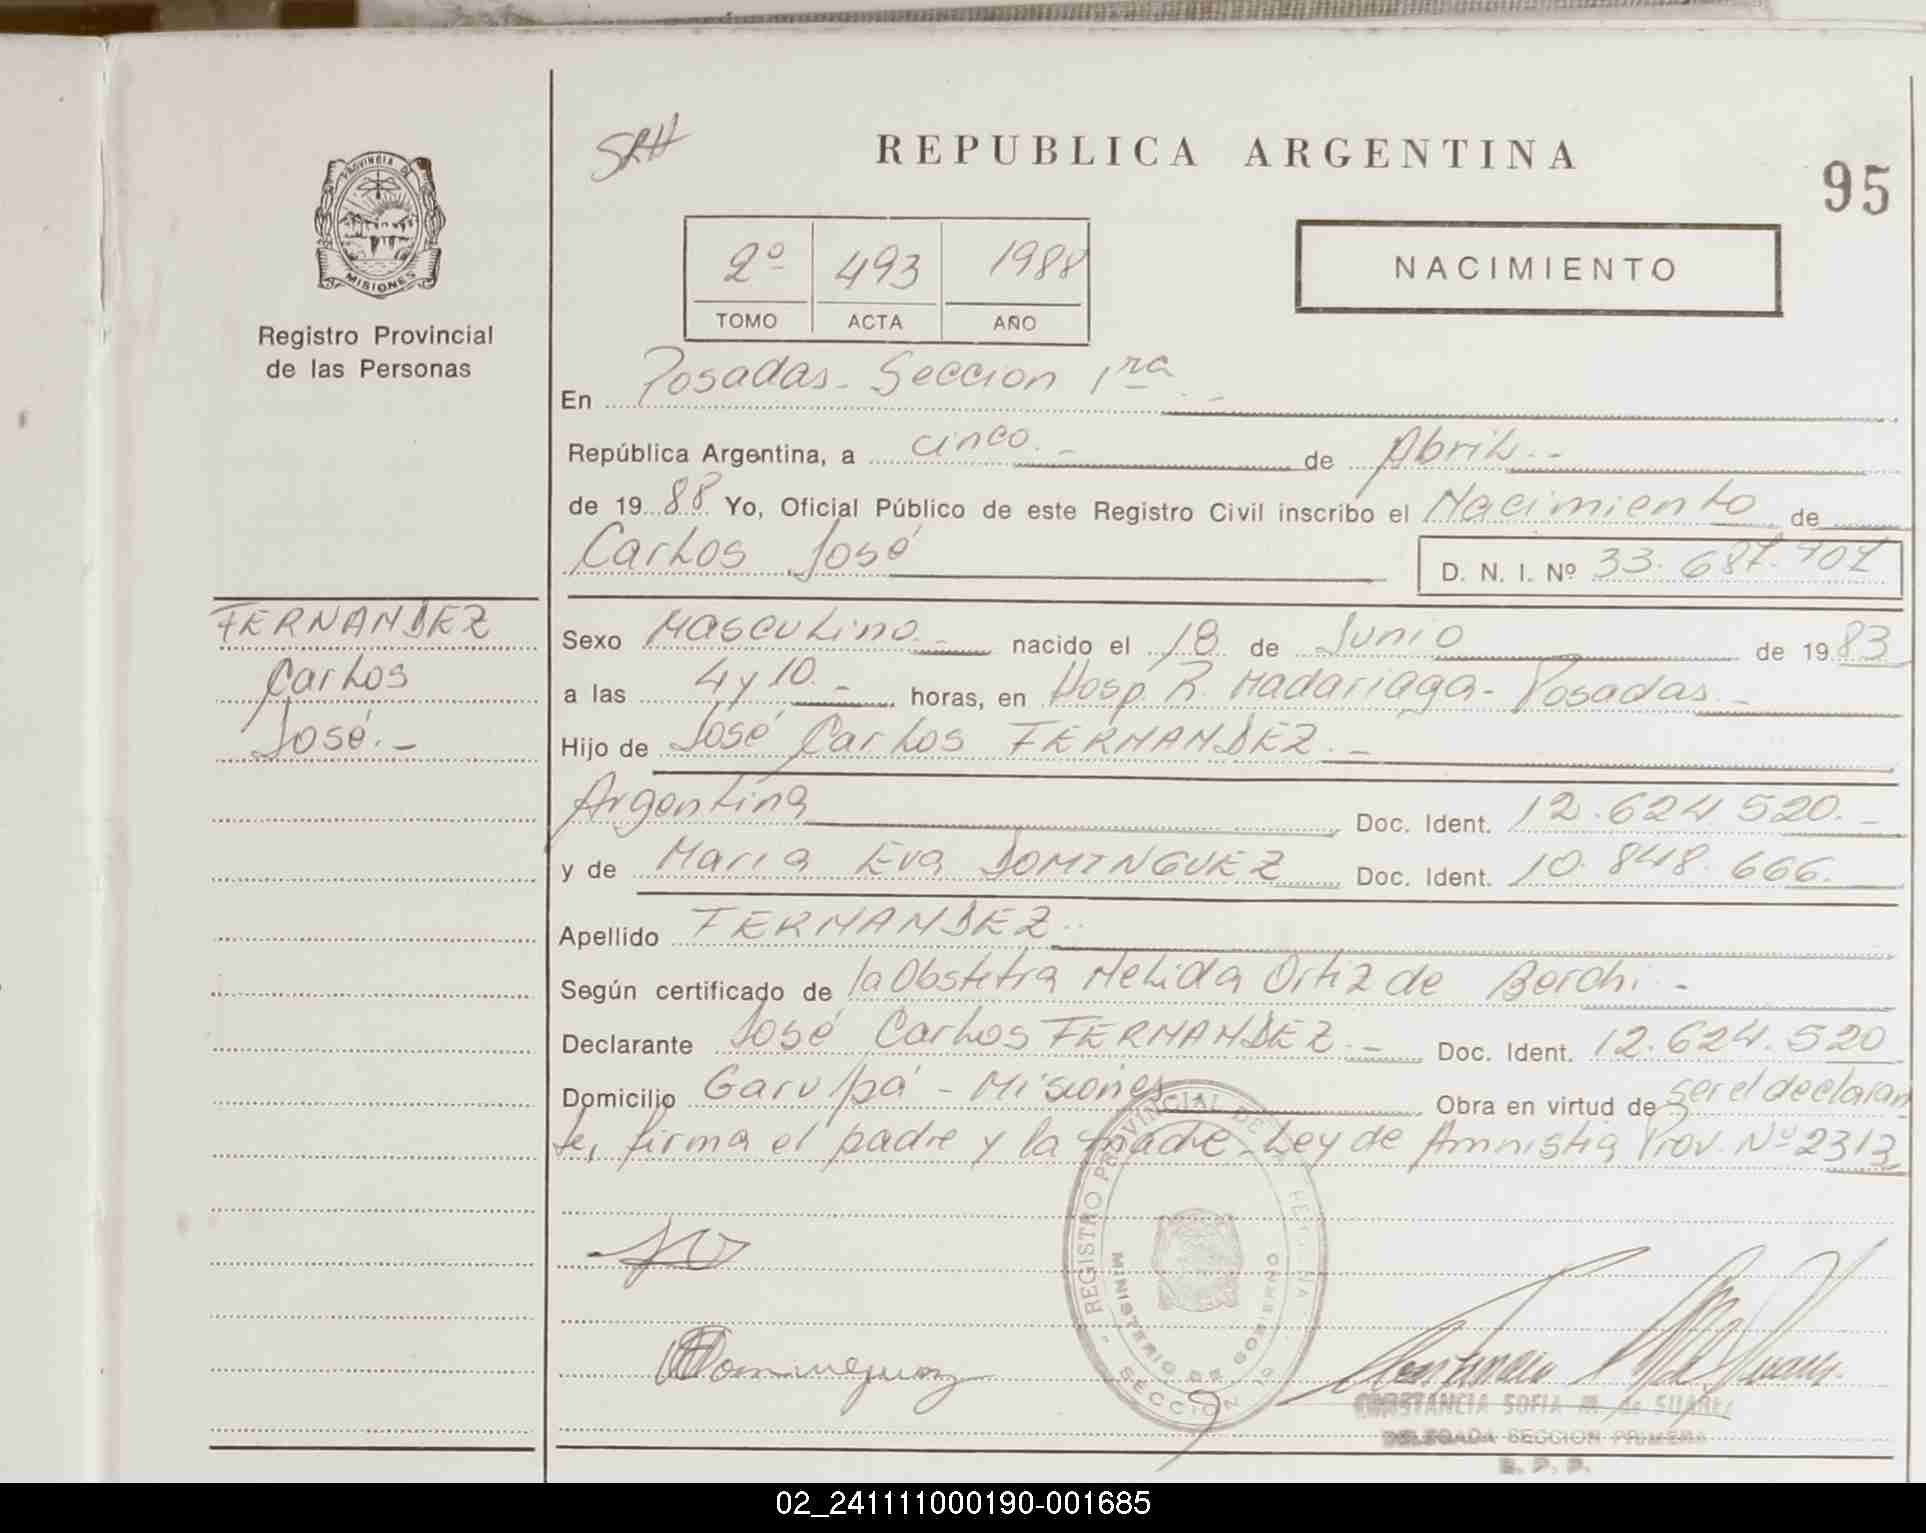 SRH
REPUBLICA ARGENTINA
95
PROVINCIA DE
MISIONES
Registro Provincial
de las Personas
2º 493 1988
TOMO ACTA AÑO
NACIMIENTO
En Posadas - Seccion 1ra
República Argentina, a cinco.- de Abril.-
de 1988 Yo, Oficial Público de este Registro Civil inscribo el Nacimiento de
Carlos José
D. N. I. Nº 33.687.907
FERNANDEZ
Carlos
José.-
Sexo Masculino.- nacido el 18 de Junio de 1983
a las 4 y 10.- horas, en Hosp. R. Madariaga - Posadas.-
Hijo de José Carlos FERNANDEZ.-
Argentina Doc. Ident. 12.624.520.-
y de Maria Eva DOMINGUEZ Doc. Ident. 10.848.666.
Apellido FERNANDEZ..
Según certificado de la Obstetra Nelida Ortiz de
Declarante José Carlos FERNANDEZ.- Doc. Ident. 12.624.520
Domicilio Garupá - Misiones Obra en virtud de ser el declaran
te, firma el padre y la madre - Ley de Amnistia Prov. Nº 2313
REGISTRO PROVINCIAL DE
MINISTERIO DE GOBIERNO
SECCION
Dominguez
CONSTANCIA SOFIA M. de SUAREZ
DELEGADA SECCION PRIMERA
R. P. P.
02_241111000190-001685